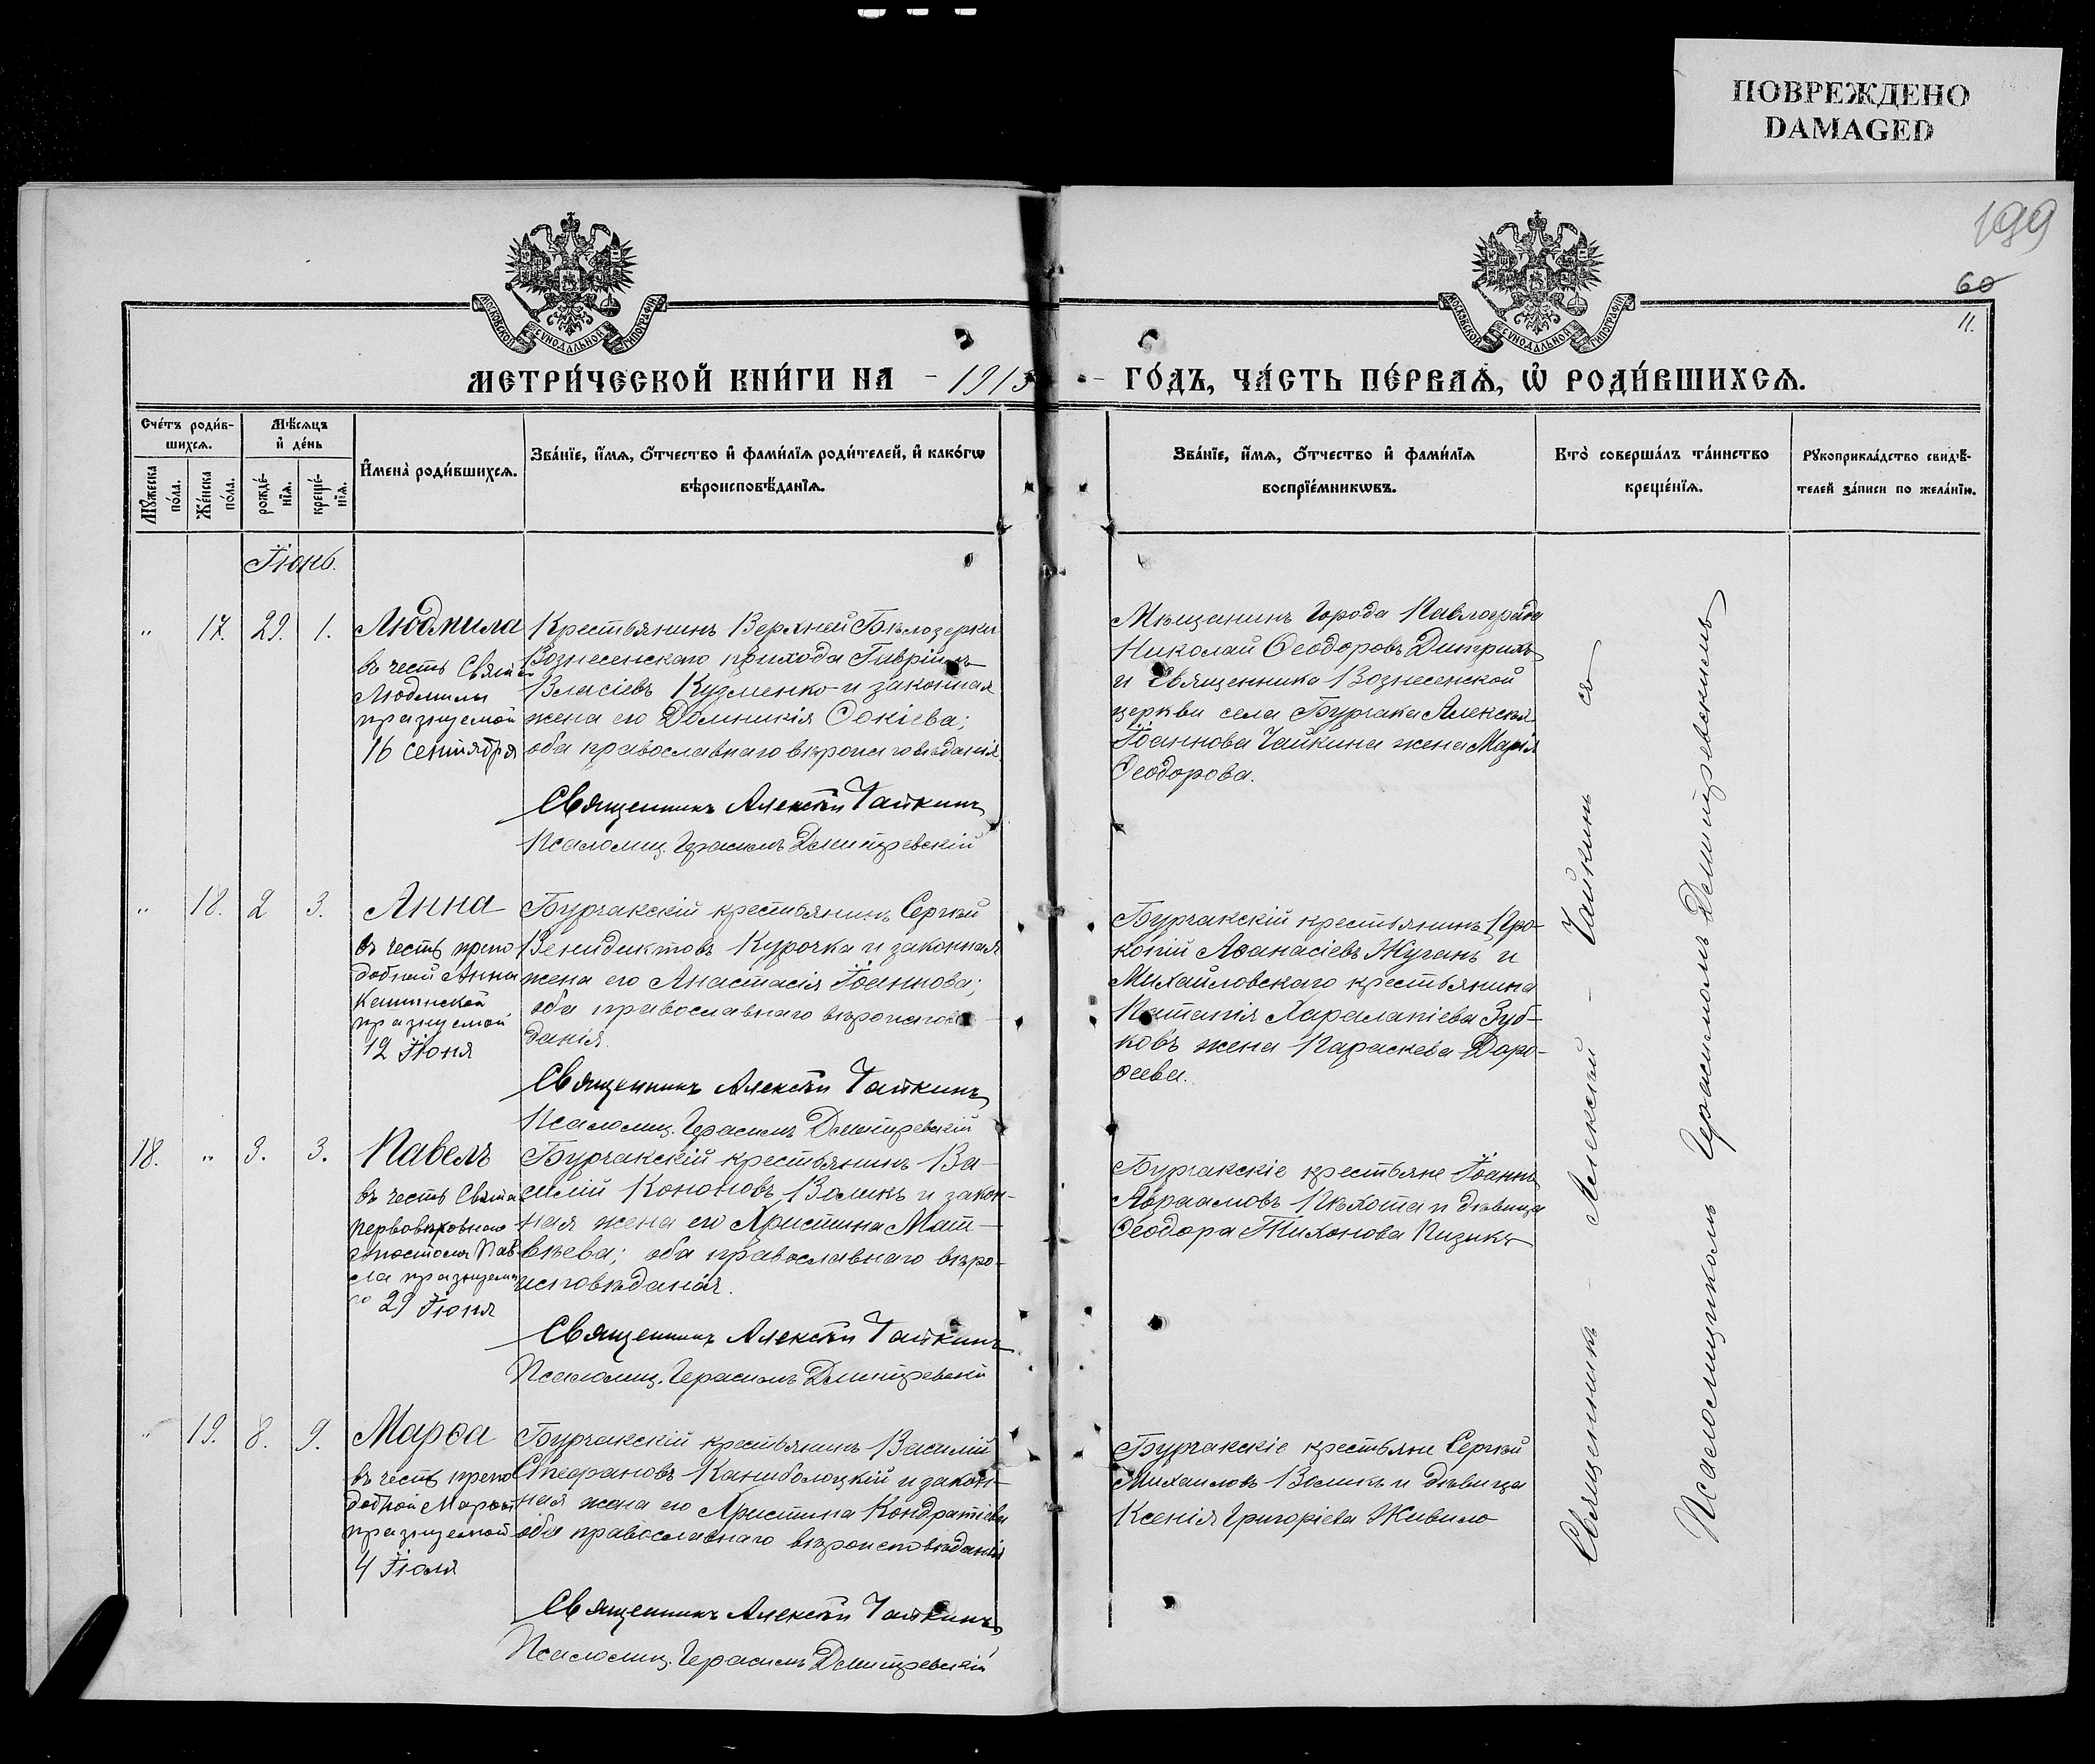 ПОВРЕЖДЕНО
DAMAGED
199
60
11.
МОСКОВСКОЙ СѴНОДАЛЬНОЙ ТИПОГРАФІИ
МОСКОВСКОЙ СѴНОДАЛЬНОЙ ТИПОГРАФІИ
МЕТРИ́ЧЕСКОЙ КНИ́ГИ НА - 1915 - ГО́ДЪ, ЧА́СТЬ ПЕ́РВАѦ, Ѡ҆ РОДИ́ВШИХСѦ.
Сче́тъ роди́в-
шихсѧ.
Мꙋ́жеска по́ла.
Же́нска по́ла.
Мѣ́сѧцъ
и҆ де́нь
рожде́-нїѧ.
креще́-нїѧ.
И҆мена̀ роди́вшихсѧ.
Зва́нїе, и҆́мѧ, ѻ҆́тчество и҆ фами́лїѧ роди́телей, и҆ како́гѡ
вѣроисповѣ́данїѧ.
Зва́нїе, и҆́мѧ, ѻ҆́тчество и҆ фами́лїѧ
воспрїе́мникѡвъ.
Кто̀ соверша́лъ та́инство
креще́нїѧ.
Рꙋкоприкла́дство свидѣ́-
телей за́писи по жела́нїю.
Іюнь.
" 17. 29. 1. Людмила
въ честь Святой
Людмилы
празнуемой
16 сентября
Крестьянинъ Верхней Бѣлозерки
Вознесенскаго прихода Гавріилъ
Власіевъ Кузменко и законная
жена его Домникія Фокіева;
оба православнаго вѣроисповѣданія
Священникъ Алексѣй Чайкинъ
Псаломщ. Герасимъ Дмитревскій
Мѣщанинъ города Павлограда
Николай Ѳеодоровъ Дитрихъ
и Священника Вознесенской
церкви села Бурчака Алексѣя
Іоаннова Чайкина жена Марія
Ѳеодорова.
" 18. 2 3. Анна
въ честь препо
добной Анны
Кашинской
празнуемой
12 Іюня
Бурчакскій крестьянинъ Сергѣй
Венидиктовъ Курочка и законная
жена его Анастасія Іоаннова;
оба православнаго вѣроисповѣ-
данія.
Священникъ Алексѣй Чайкинъ
Псаломщ. Герасимъ Дмитревскій
Бурчакскій крестьянинъ Про-
копій Аѳанасіевъ Жуганъ и
Михайловскаго крестьянина
Потапія Харалапіева Зуб-
ковъ жена Параскева Доро-
ѳеева.
18. " 3. 3. Павелъ
въ честь Свята
Первоверховнаго
Апостола Пав
ла празнуема
го 29 Іюня
Бурчакскій крестьянинъ Ва-
силій Кононовъ Воликъ и закон-
ная жена его Христина Мат-
вѣева; оба православнаго вѣро-
исповѣданія.
Священникъ Алексѣй Чайкинъ
Псаломщ. Герасимъ Дмитревскій
Бурчакскіе крестьяне Іоаннъ
Авраамовъ Пѣхота и дѣвица
Ѳеодора Тихонова Пизикъ
" 19. 8. 9. Марѳа
въ честь препо
добной Марѳы
празнуемой
4 Іюля
Бурчакскій крестьянинъ Василій
Стефановъ Каниболоцкій и закон-
ная жена его Христина Кондратіева
оба православнаго вѣроисповѣданія
Священникъ Алексѣй Чайкинъ
Псаломщ. Герасимъ Дмитревскій
Бурчакскіе крестьяне Сергѣй
Михаиловъ Воликъ и дѣвица
Ксенія Григоріева Живило
Священникъ - Алексѣй - Чайкинъ съ
Псаломщикомъ Герасимомъ Дмитревскимъ